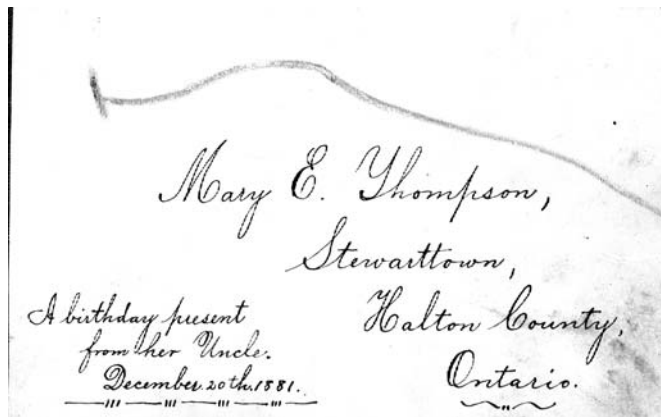 Mary E. Thompson,
Stewarttown,
Halton County,
Ontario.
A birthday present
from her Uncle.
December. 20th. 1881.